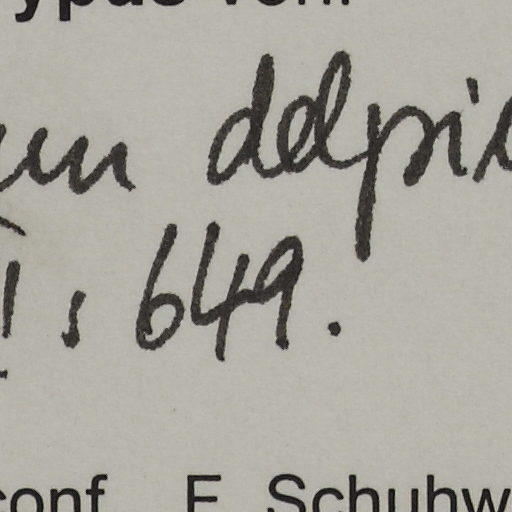 ypus von:
um delpi
I: 649.
conf. E. Schuhw